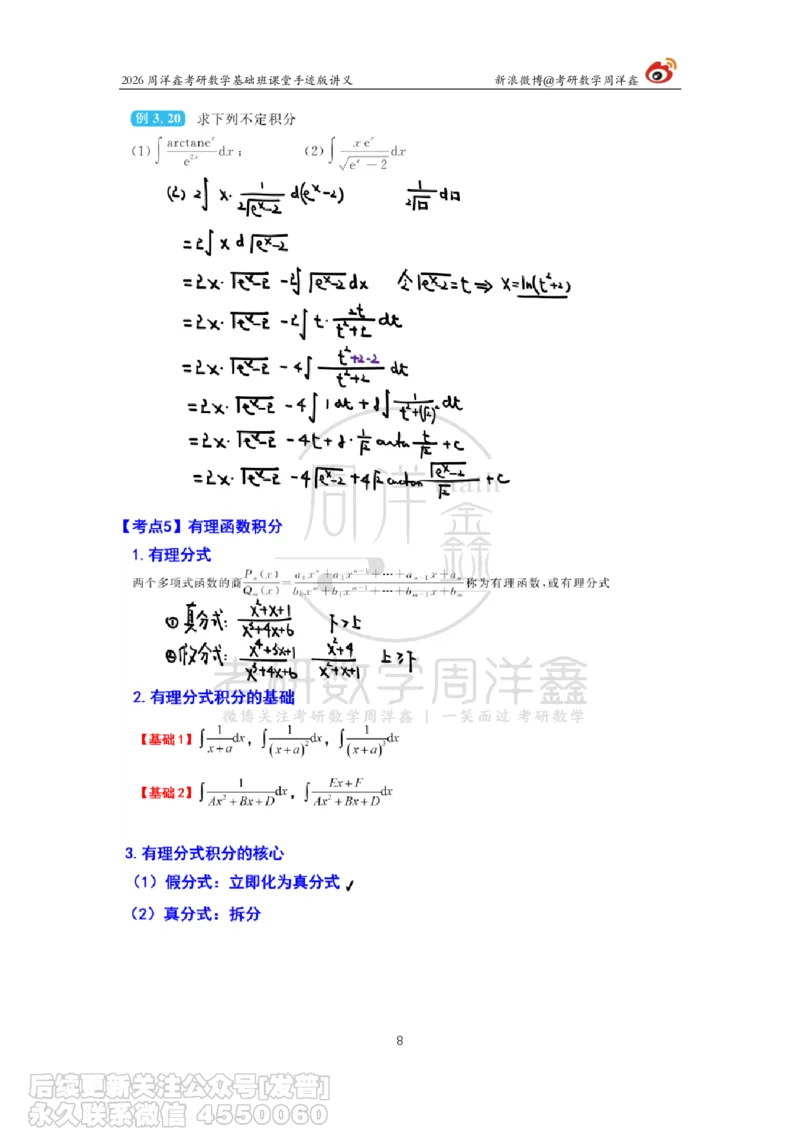 2026周洋鑫考研数学基础班课堂手迹版讲义 新浪微博@考研数学周洋鑫
例 3.20 求下列不定积分
(1) ∫ arctane^x / e^{2x} dx; (2) ∫ xe^x / √(e^x − 2) dx
(2) 2∫ x· 1/(2√(e^x-2)) d(e^x-2) 1/(2√□) d□
= 2∫ x d√(e^x-2)
= 2x·√(e^x-2) - 2∫√(e^x-2) dx 令√(e^x-2)=t ⇒ x=ln(t²+2)
= 2x·√(e^x-2) - 2∫ t· 2t/(t²+2) dt
= 2x·√(e^x-2) - 4∫ (t²+2-2)/(t²+2) dt
= 2x·√(e^x-2) - 4∫ 1 dt + 8∫ 1/(t²+(√2)²) dt
= 2x·√(e^x-2) - 4t + 8· 1/√2 arctan t/√2 + c
= 2x·√(e^x-2) - 4√(e^x-2) + 4√2 arctan √(e^x-2)/√2 + c
周洋鑫
math
【考点5】有理函数积分
1. 有理分式
两个多项式函数的商 P_n(x)/Q_m(x) = (a_0x^n + a_1x^{n-1} + ··· + a_{n-1}x + a_n)/(b_0x^m + b_1x^{m-1} + ··· + b_{m-1}x + b_m) 称为有理函数,或有理分式
① 真分式: (x²+x+1)/(x³+4x+6) 下>上
② 假分式: (x⁴+3x+1)/(x³+4x+6) (x²+4)/(x²+x+1) 上≥下
考研数学周洋鑫
2. 有理分式积分的基础
微博关注考研数学周洋鑫 | 一笑而过 考研数学
【基础1】∫ 1/(x+a) dx, ∫ 1/(x+a)² dx, ∫ 1/(x+a)³ dx
【基础2】∫ 1/(Ax²+Bx+D) dx, ∫ (Ex+F)/(Ax²+Bx+D) dx
3. 有理分式积分的核心
(1)假分式:立即化为真分式 ✓
(2)真分式:拆分
8
后续更新关注公众号[发普]
永久联系微信 4550060